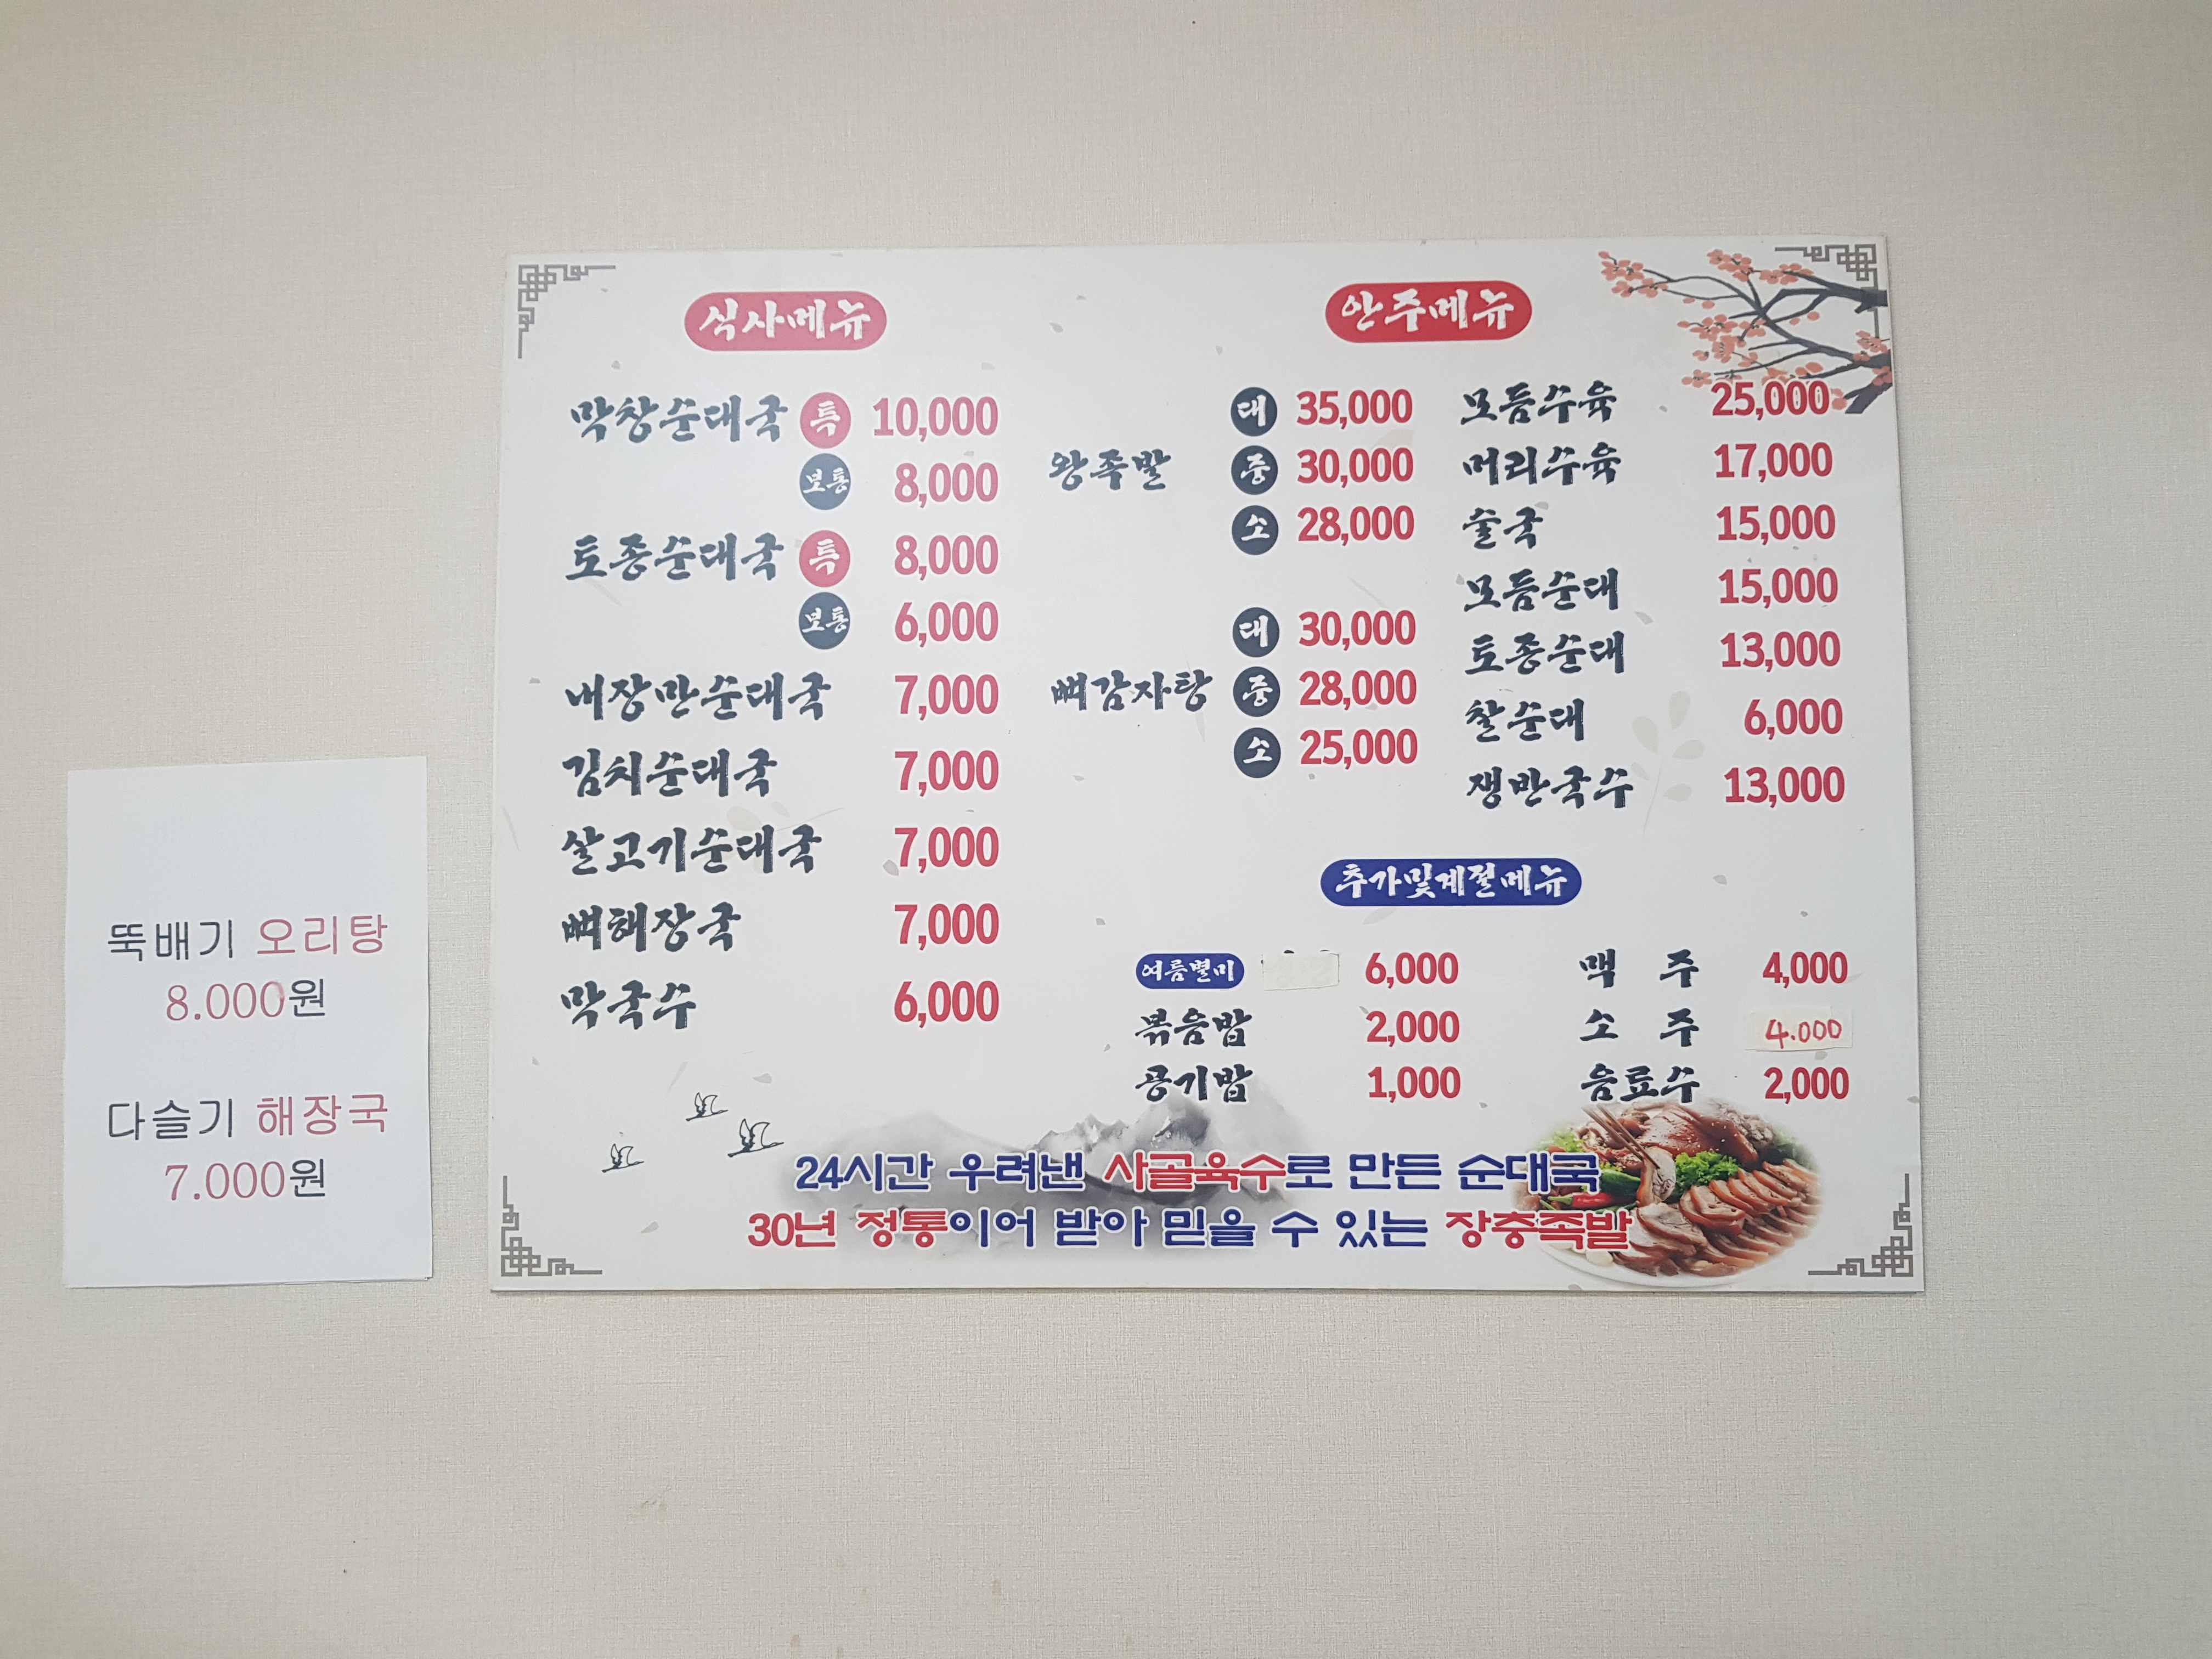 식사메뉴
막창순대국 특 10,000
보통 8,000
토종순대국 특 8,000
보통 6,000
내장만순대국 7,000
김치순대국 7,000
살고기순대국 7,000
뼈해장국 7,000
막국수 6,000
안주메뉴
왕족발
대 35,000
중 30,000
소 28,000
뼈감자탕
대 30,000
중 28,000
소 25,000
모듬수육 25,000
머리수육 17,000
술국 15,000
모듬순대 15,000
토종순대 13,000
찰순대 6,000
쟁반국수 13,000
추가및계절메뉴
여름별미 6,000
볶음밥 2,000
공기밥 1,000
맥 주 4,000
소 주 4.000
음료수 2,000
24시간 우려낸 사골육수로 만든 순대국
30년 정통이어 받아 믿을 수 있는 장충족발
뚝배기 오리탕
8.000원
다슬기 해장국
7.000원